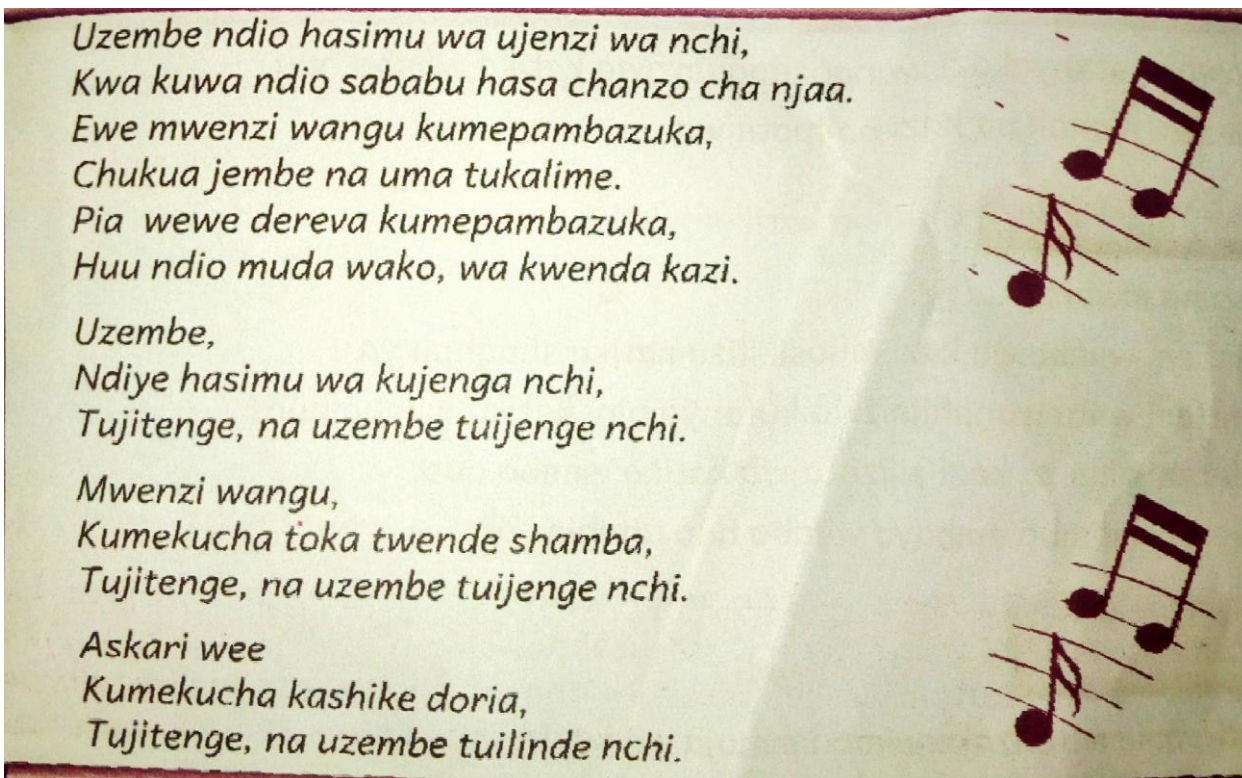 Uzembe ndio hasimu wa ujenzi wa nchi,
Kwa kuwa ndio sababu hasa chanzo cha njaa.
Ewe mwenzi wangu kumepambazuka,
Chukua jembe na uma tukalime.
Pia wewe dereva kumepambazuka,
Huu ndio muda wako, wa kwenda kazi.
Uzembe,
Ndiye hasimu wa kujenga nchi,
Tujitenge, na uzembe tuijenge nchi.
Mwenzi wangu,
Kumekucha toka twende shamba,
Tujitenge, na uzembe tuijenge nchi.
Askari wee
Kumekucha kashike doria,
Tujitenge, na uzembe tuilinde nchi.